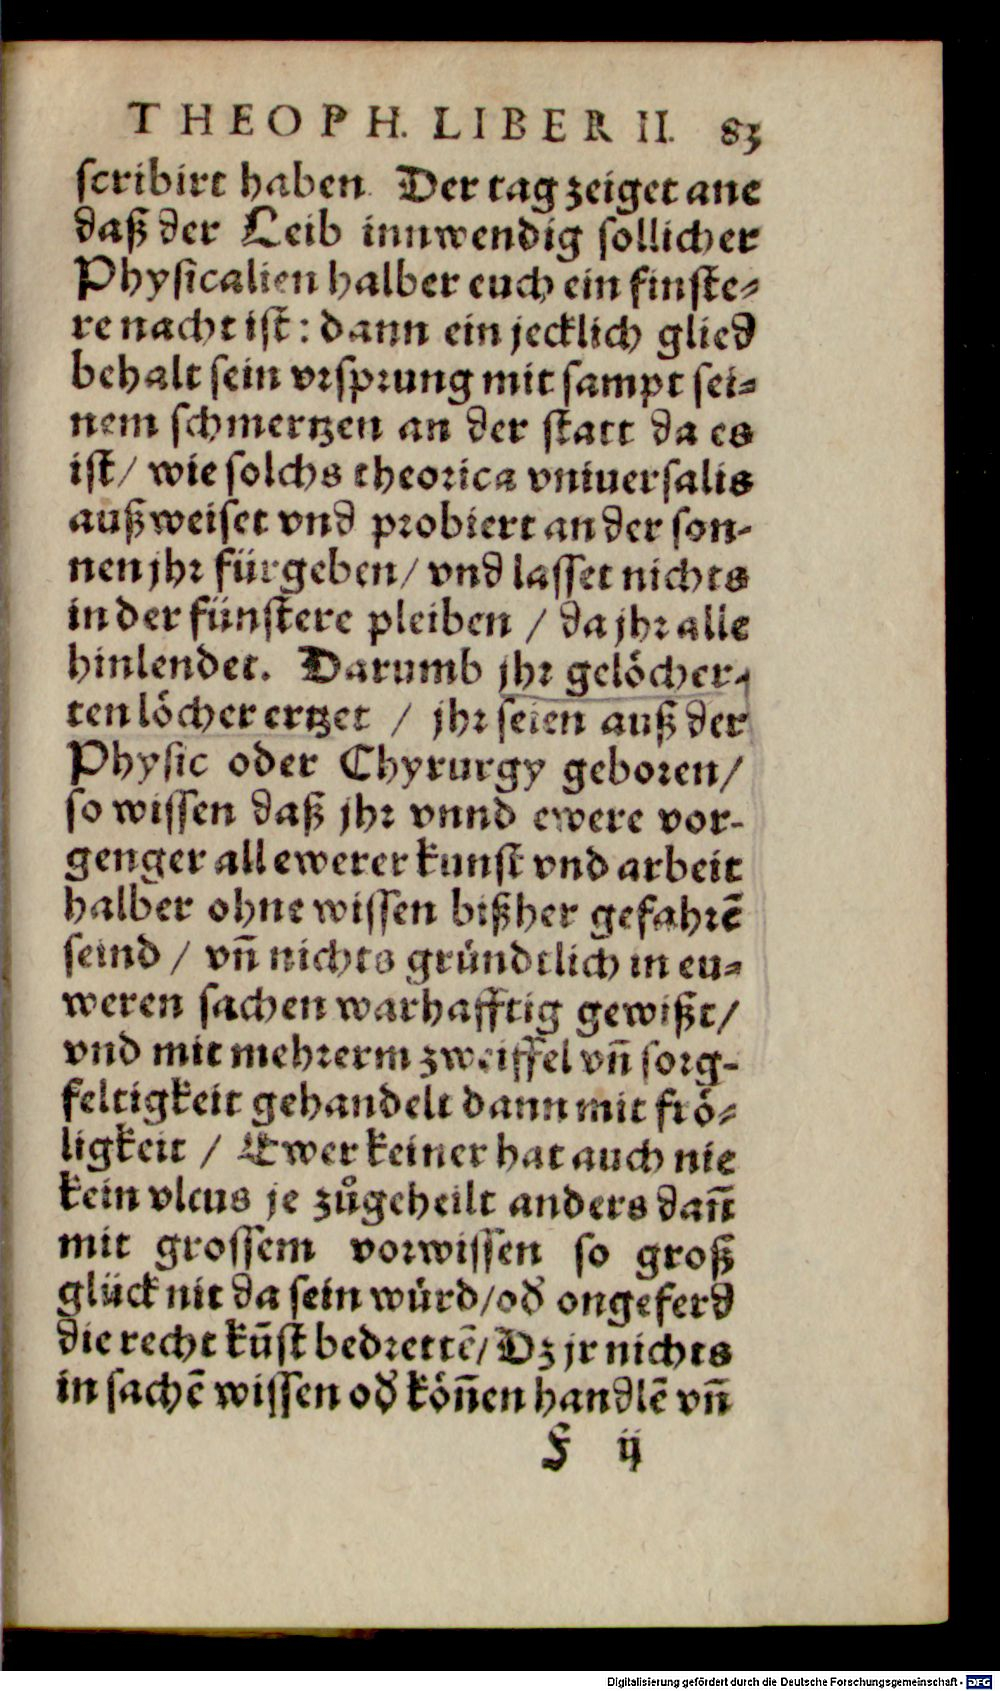 THEOPH. LIBER II. 83
scribirt haben. Der tag zeiget ane
daß der Leib innwendig sollicher
Physicalien halber euch ein finste-
re nacht ist: dann ein jecklich glied
behalt sein vrsprung mit sampt sei-
nem schmertzen an der statt da es
ist/ wie solchs theorica vniuersalis
außweiset vnd probiert an der son-
nen jhr fürgeben/ vnd lasset nichts
in der fünstere pleiben / da jhr alle
hinlendet. Darumb jhr gelöcher-
ten löcher ertzet / jhr seien auß der
Physic oder Chyrurgy geboren/
so wissen daß jhr vnnd ewere vor-
genger all ewerer kunst vnd arbeit
halber ohne wissen bißher gefahrē
seind / vn̄ nichts gründtlich in eu-
weren sachen warhafftig gewißt/
vnd mit mehrerm zweiffel vn̄ sorg-
feltigkeit gehandelt dann mit frö-
ligkeit / Ewer keiner hat auch nie
kein vlcus je zůgeheilt anders dañ
mit grossem vorwissen so groß
glück nit da sein würd/od̕ ongeferd
die recht kūst bedrettē/ Dz jr nichts
in sachē wissen od̕ kön̄en handlē vn̄
F ij
Digitalisierung gefördert durch die Deutsche Forschungsgemeinschaft - DFG